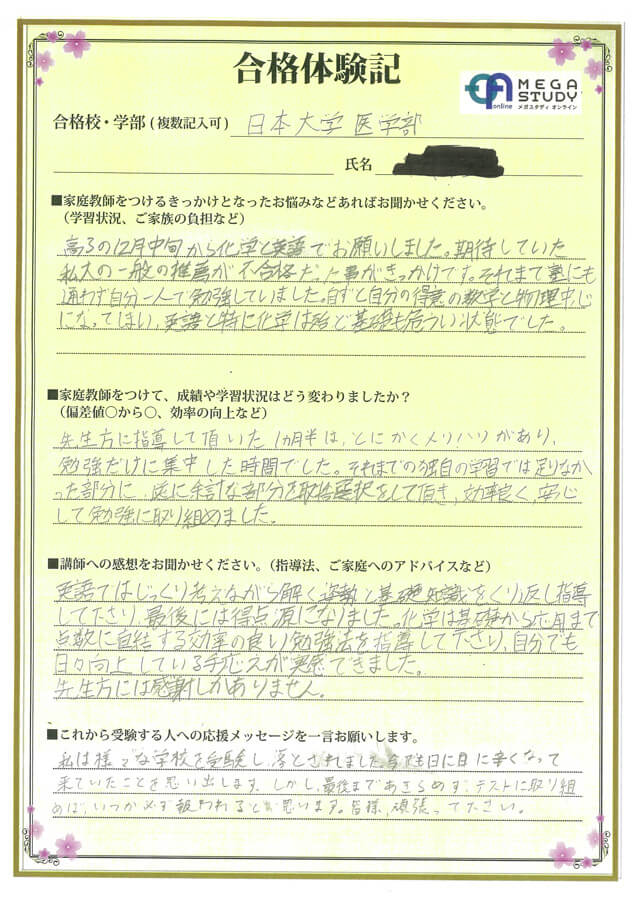 合格体験記
MEGA
STUDY
online メガスタディ オンライン
合格校・学部(複数記入可) 日本大学 医学部
氏名
■家庭教師をつけるきっかけとなったお悩みなどあればお聞かせください。
(学習状況、ご家族の負担など)
高3の12月中旬から化学と英語でお願いしました。期待していた
私大の一般の推薦が不合格だった事がきっかけです。それまで塾にも
通わず自分一人で勉強していました。自ずと自分の得意の数学と物理中心
になってしまい、英語と特に化学は殆ど基礎も危うい状態でした。
■家庭教師をつけて、成績や学習状況はどう変わりましたか?
(偏差値〇から〇、効率の向上など)
先生方に指導して頂いた1ヵ月半は、とにかくメリハリがあり、
勉強だけに集中した時間でした。それまでの独自の学習では足りなか
った部分に、逆に余計な部分を取捨選択をして頂き、効率良く、安心
して勉強に取り組めました。
■講師への感想をお聞かせください。(指導法、ご家庭へのアドバイスなど)
英語ではじっくり考えながら解く姿勢と基礎知識をくり返し指導
して下さり、最後には得点源になりました。化学は基礎から応用まで
点数に直結する効率の良い勉強法を指導して下さり、自分でも
日々向上している手応えが実感できました。
先生方には感謝しかありません。
■これから受験する人への応援メッセージを一言お願いします。
私は様々な学校を受験し、落とされました。日に日に辛くなって
来ていたことを思い出します。しかし、最後まであきらめず、テストに取り組
めば、いつか必ず報われると思います。皆様、頑張って下さい。